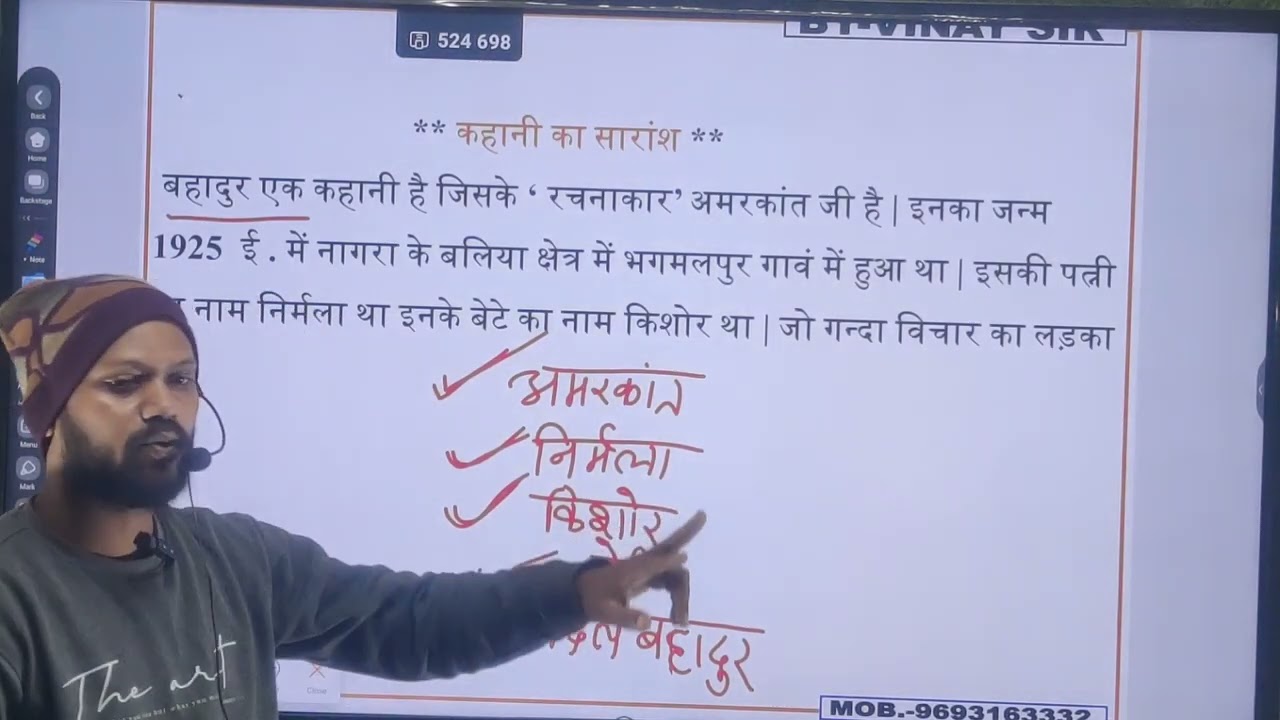 524 698
BY-VINAY SIR
Back
Home
Backstage
Note
** कहानी का सारांश **
बहादुर एक कहानी है जिसके ‘ रचनाकार’ अमरकांत जी है | इनका जन्म
1925 ई . में नागरा के बलिया क्षेत्र में भगमलपुर गावं में हुआ था | इसकी पत्नी
नाम निर्मला था इनके बेटे का नाम किशोर था | जो गन्दा विचार का लड़का
अमरकांत
निर्मला
किशोर
बहादुर
Menu
Mark
Close
The art
MOB.-9693163332